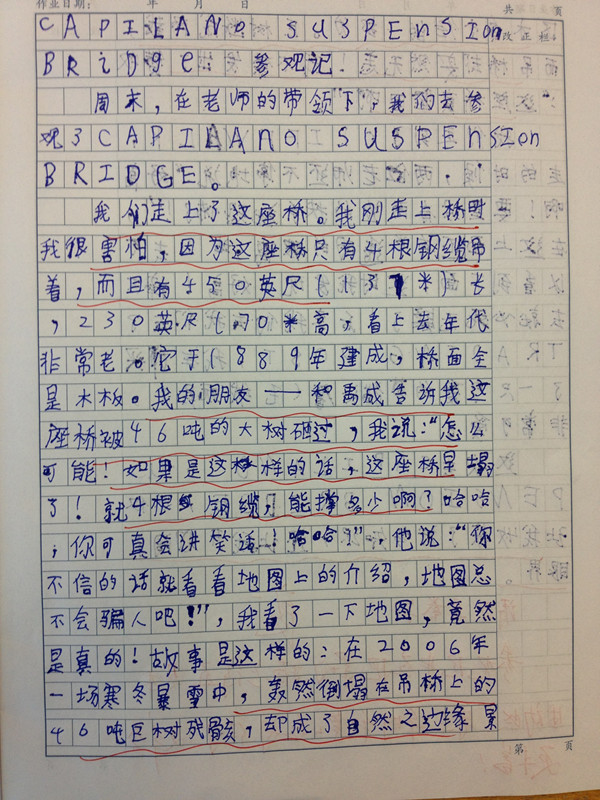 作业日期： 年 月 日 共 页
CAPILANO SUSPENSION
BRiDge 参观记！
周末，在老师的带领下，我们去参
观了CAPILANO SUSPENSION
BRIDGE。
我们走上了这座桥。我刚走上桥时
我很害怕，因为这座桥只有4根钢缆吊
着，而且有450英尺（137米）长
，230英尺（70米高，看上去年代
非常老。它于889年建成，桥面全
是木板。我的朋友——禹成告诉我这
座桥被46吨的大树砸过，我说：“怎么
可能！如果是这样的话，这座桥早塌
了！就4根钢缆，能撑多少啊？哈哈
，你可真会讲笑话！哈哈！”，他说：“你
不信的话就看看地图上的介绍，地图总
不会骗人吧！”，我看了一下地图，竟然
是真的！故事是这样的：在2006年
一场寒冬暴雪中，轰然倒塌在吊桥上的
46吨巨树残骸，却成了自然之边缘景
第 页